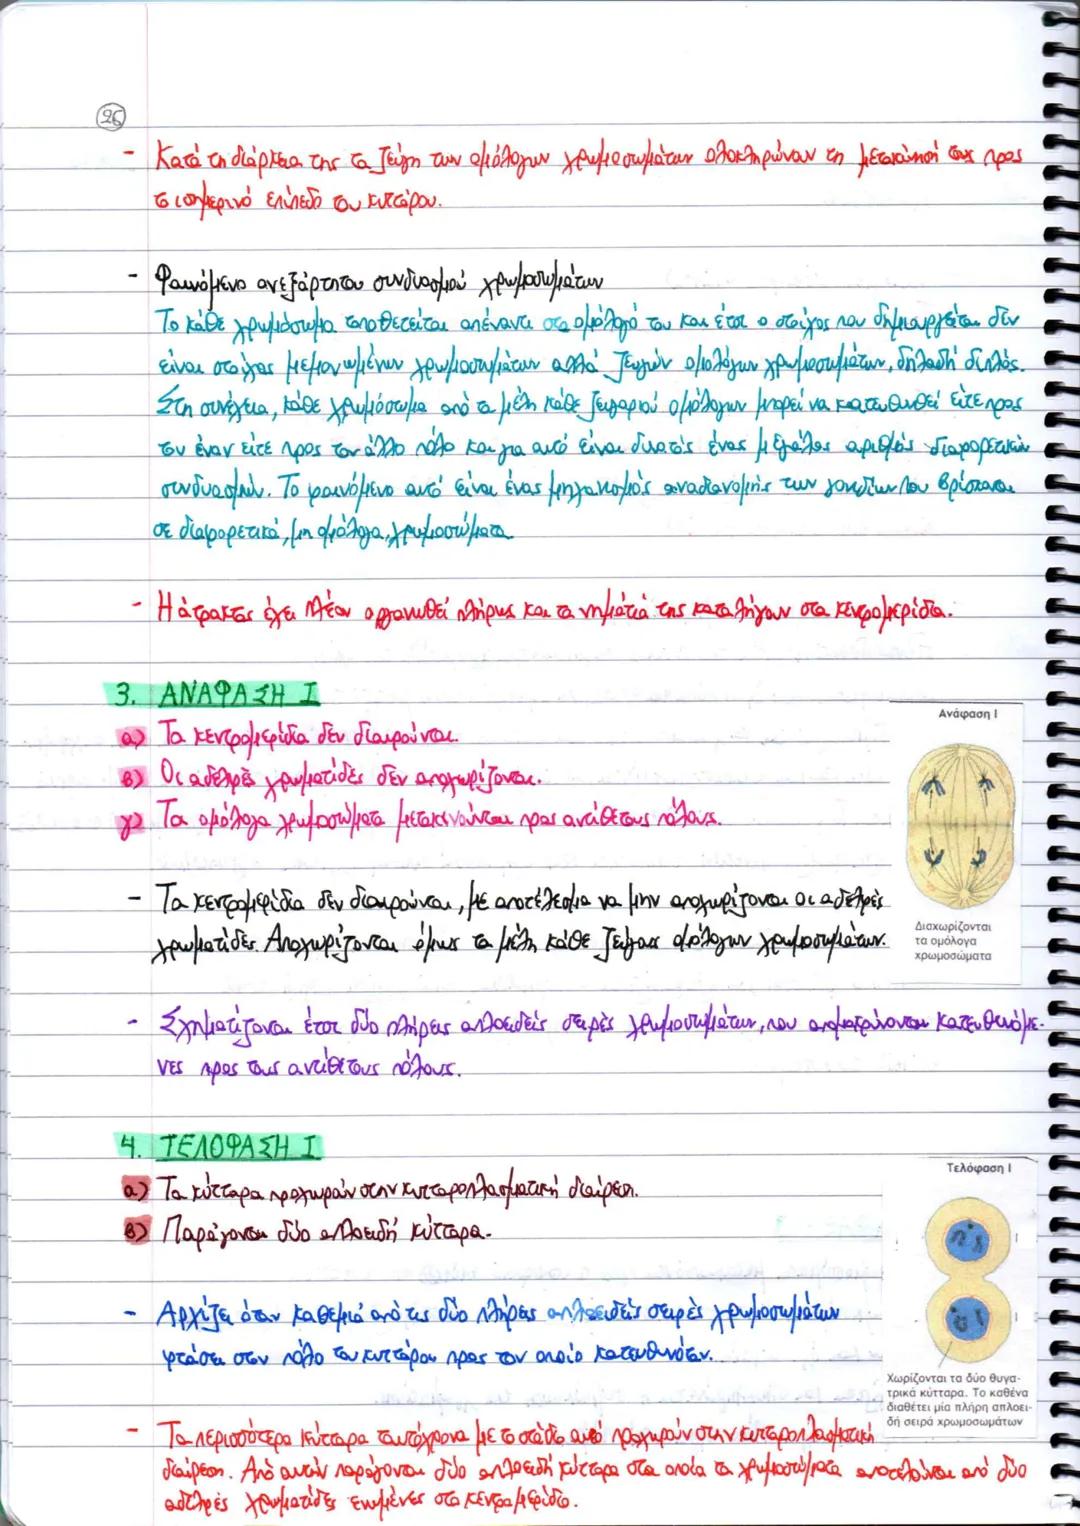 26
- Κατά τη διάρκεια της τα ζεύγη των ομόλογων χρωμοσωμάτων ολοκληρώνουν τη μετακίνησή τους προς
το ισημερινό επίπεδο του κυττάρου.
- Φαινόμενο ανεξάρτητου συνδυασμού χρωμοσωμάτων
Το κάθε χρωμόσωμα τοποθετείται απέναντι στο ομόλογό του και έτσι ο στοίχος που δημιουργείται δεν
είναι στοίχος μεμονωμένων χρωμοσωμάτων αλλά ζευγών ομολόγων χρωμοσωμάτων, δηλαδή διπλός.
Στη συνέχεια, κάθε χρωμόσωμα από τα μέλη κάθε ζευγαριού ομόλογων μπορεί να κατευθυνθεί είτε προς
τον έναν είτε προς τον άλλο πόλο και για αυτό είναι δυνατός ένας μεγάλος αριθμός διαφορετικών
συνδυασμών. Το φαινόμενο αυτό είναι ένας μηχανισμός αναδιανομής των γονιδίων που βρίσκονται
σε διαφορετικά, μη ομόλογα, χρωμοσώματα.
- Η άτρακτος έχει πλέον οργανωθεί πλήρως και τα νημάτιά της καταλήγουν στα κεντρομερίδια.
3. ΑΝΑΦΑΣΗ Ι
Ανάφαση Ι
α) Τα κεντρομερίδια δεν διαιρούνται.
β) Οι αδελφές χρωματίδες δεν αποχωρίζονται.
γ) Τα ομόλογα χρωμοσώματα μετακινούνται προς αντίθετους πόλους.
- Τα κεντρομερίδια δεν διαιρούνται, με αποτέλεσμα να μην αποχωρίζονται οι αδελφές
χρωματίδες. Αποχωρίζονται όμως τα μέλη κάθε ζεύγους ομόλογων χρωμοσωμάτων.
Διαχωρίζονται
τα ομόλογα
χρωμοσώματα
- Σχηματίζονται έτσι δύο πλήρεις απλοειδείς σειρές χρωμοσωμάτων, που απομακρύνονται κατευθυνόμε-
νες προς τους αντίθετους πόλους.
4. ΤΕΛΟΦΑΣΗ Ι
Τελόφαση Ι
α) Τα κύτταρα προχωρούν στην κυτταροπλασματική διαίρεση.
β) Παράγονται δύο απλοειδή κύτταρα.
- Αρχίζει όταν καθεμιά από τις δύο πλήρεις απλοειδείς σειρές χρωμοσωμάτων
φτάσει στον πόλο του κυττάρου προς τον οποίο κατευθυνόταν.
Χωρίζονται τα δύο θυγα-
τρικά κύτταρα. Το καθένα
διαθέτει μία πλήρη απλοει-
δή σειρά χρωμοσωμάτων
- Τα περισσότερα κύτταρα ταυτόχρονα με το στάδιο αυτό προχωρούν στην κυτταροπλασματική
διαίρεση. Από αυτήν παράγονται δύο απλοειδή κύτταρα στα οποία τα χρωμοσώματα αποτελούνται από δύο
αδελφές χρωματίδες ενωμένες στο κεντρομερίδιο.